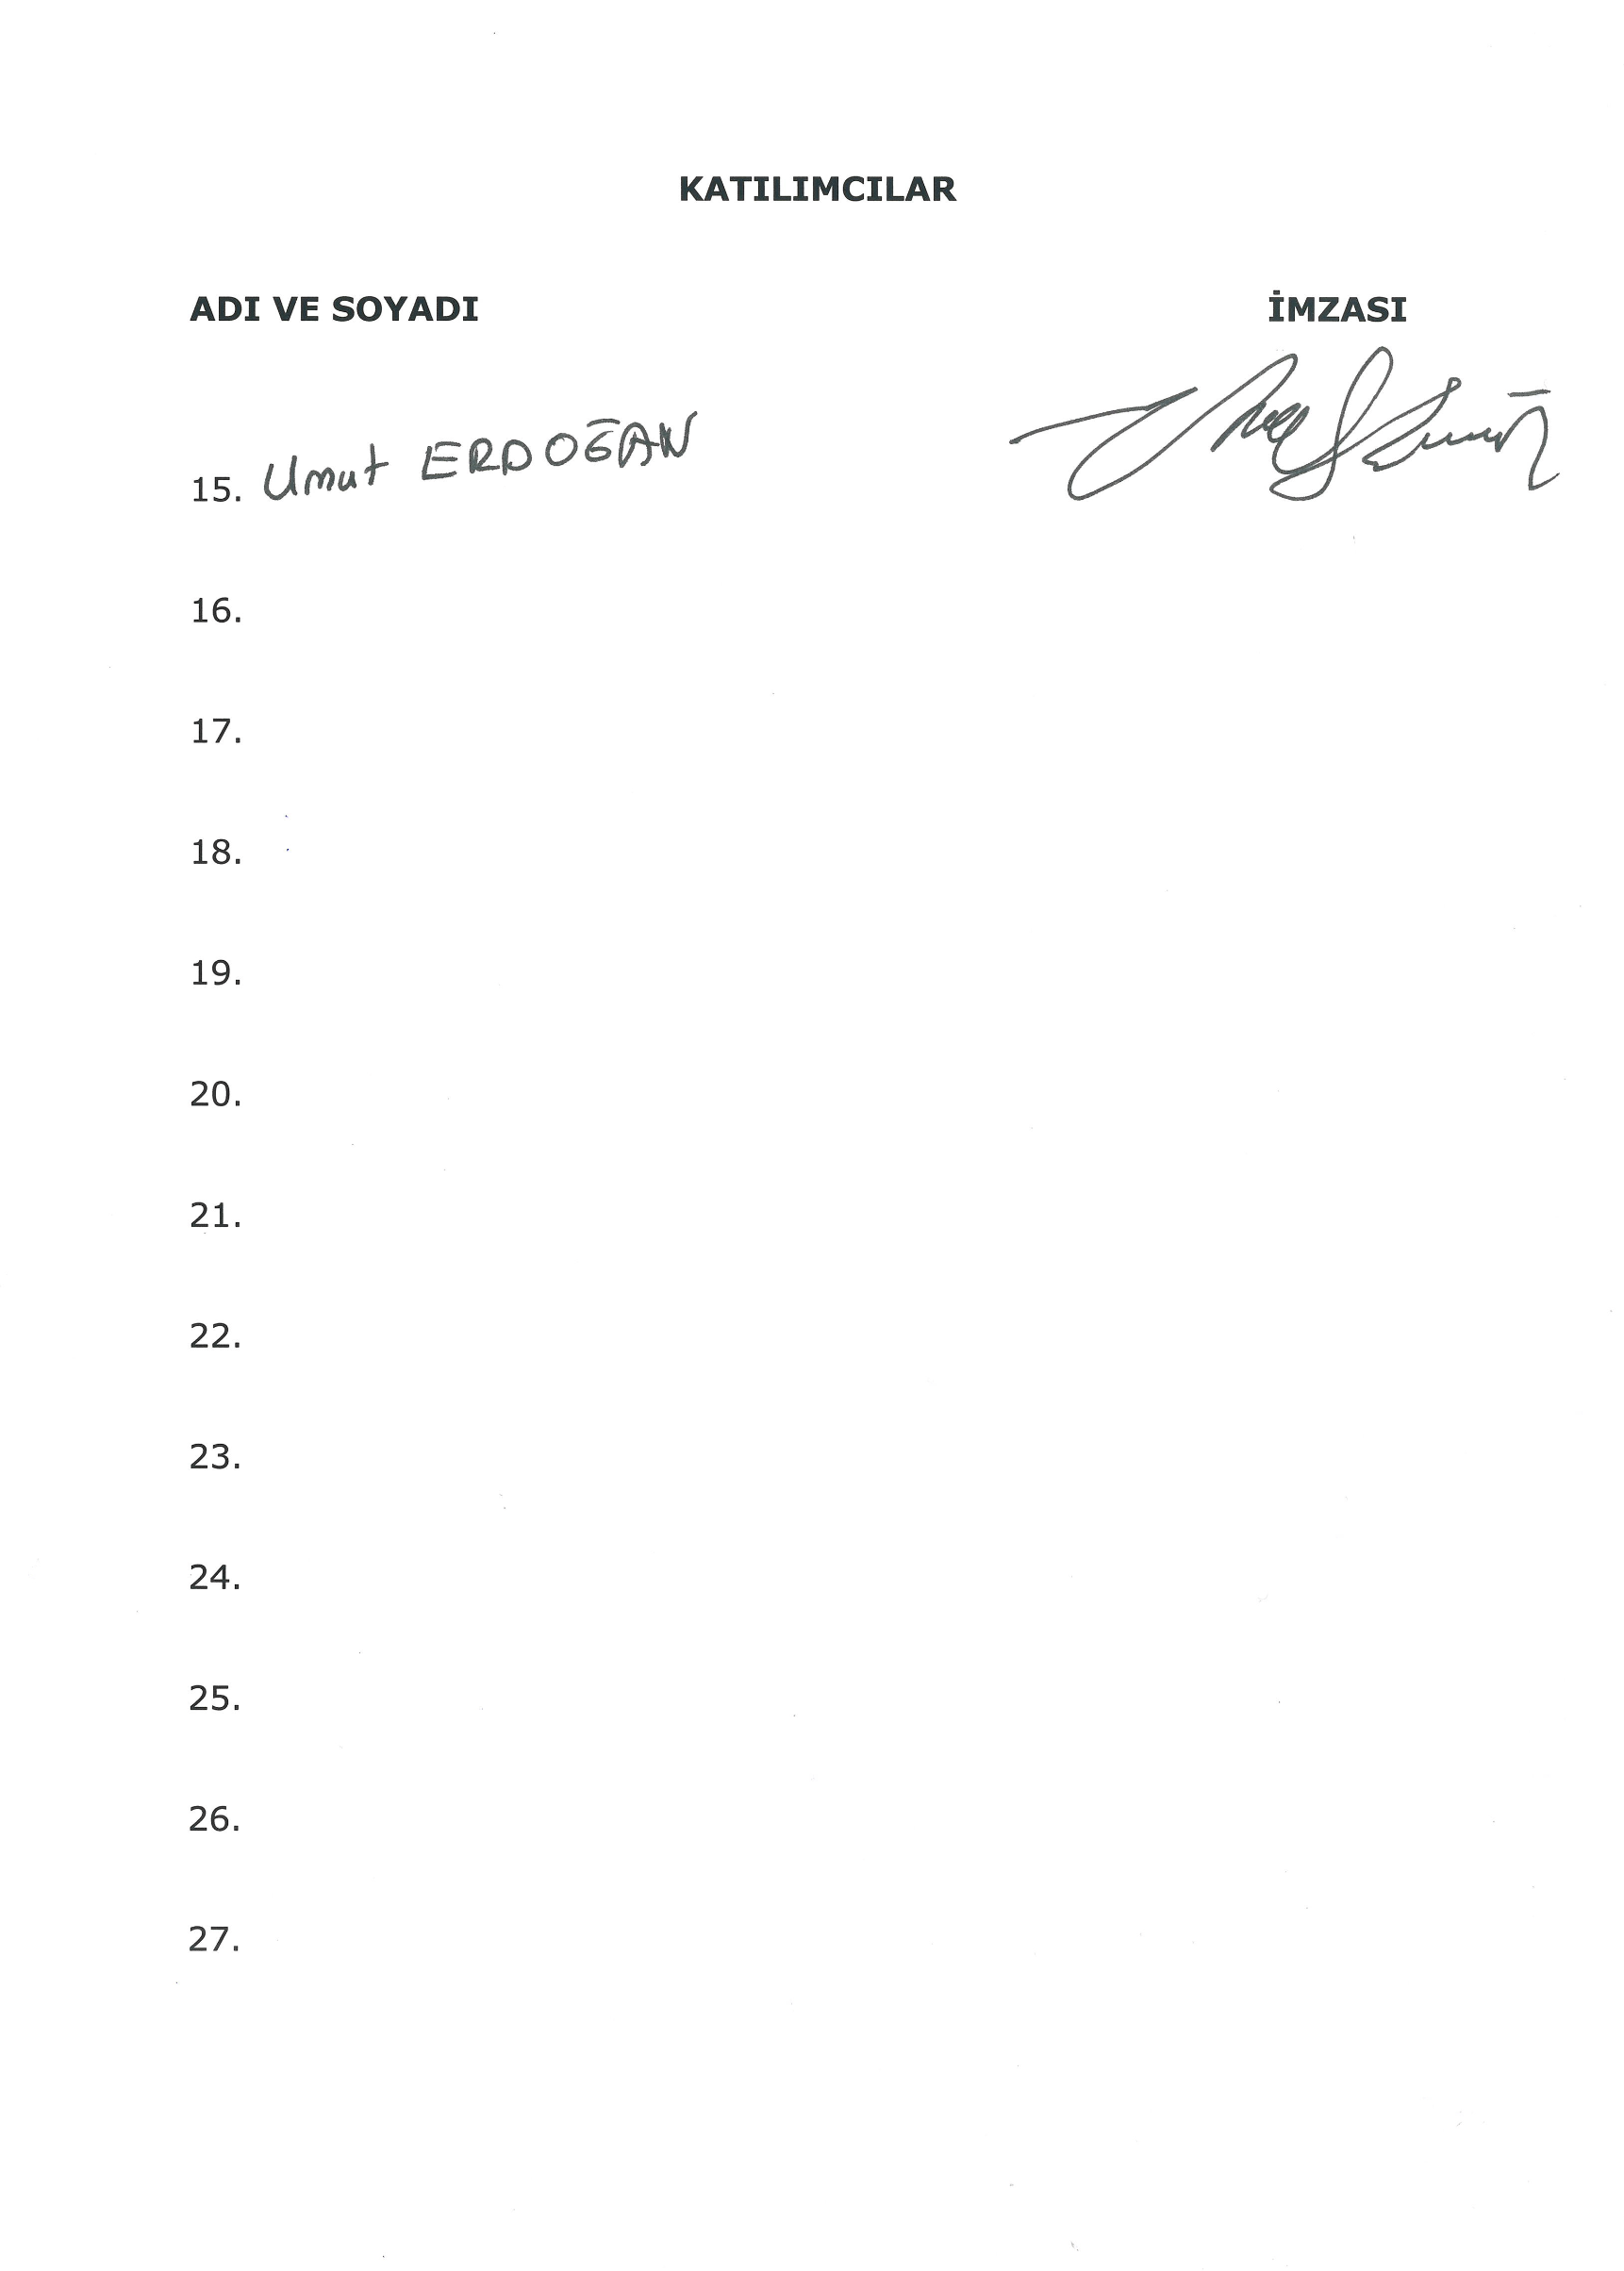 KATILIMCILAR
ADI VE SOYADI İMZASI
15. Umut ERDOĞAN
16.
17.
18.
19.
20.
21.
22.
23.
24.
25.
26.
27.